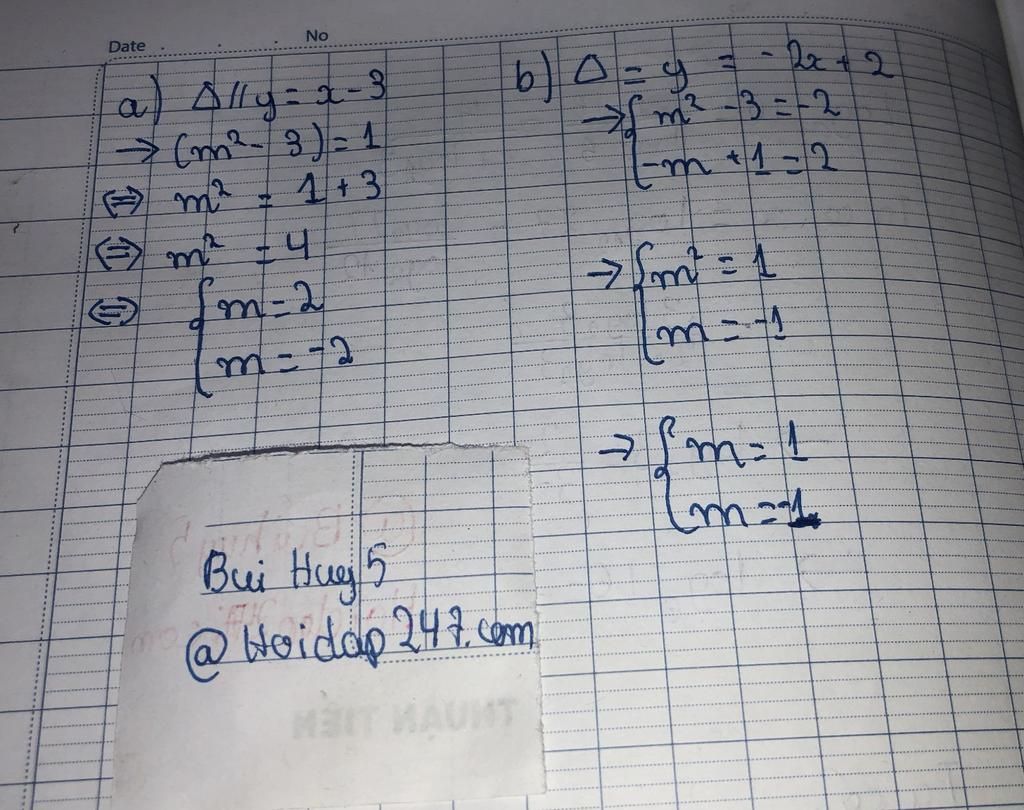 Date No
a) Δ // y = x - 3
→ (m² - 3) = 1
⇔ m² = 1 + 3
⇔ m² = 4
⇔ { m = 2
m = -2
b) Δ ≡ y = -2x + 2
→ { m² - 3 = -2
-m + 1 = 2
→ { m² = 1
m = -1
→ { m = 1
m = -1
Bui Huy5
@Hoidap247.com
THUẬN TIẾN